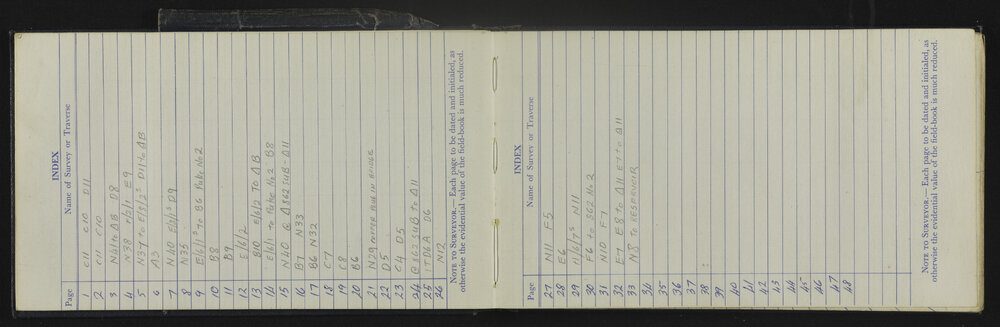 INDEX
Page Name of Survey or Traverse
1 C11 C10 D11
2 C11 C10
3 N41 to ΔB D8
4 N38 E9
5 N37 to D11 to ΔB
6 A3
7 N40 D9
8 N35
9 to B6 Puke No 2
10 B8
11 B9
12 E/6/2
13 B10 E/6/2 TO ΔB
14 E/6/1 to Puke No 2 B8
15 N40 @ Δ862 SUB- Δ11
16 B7 N33
17 B6 N32
18 C7
19 C8
20 B6
21 N29
22 D5
23 C4 D5
24 SUB to Δ11
25 D6
26 N12
NOTE TO SURVEYOR.— Each page to be dated and initialed, as
otherwise the evidential value of the field-book is much reduced.
INDEX
Page Name of Survey or Traverse
27 N11 F5
28 E6
29 N11
30 F6 to S62 No 2
31 N10 F7
32 E7 E8 to Δ11 E7 to Δ11
33 N8 TO RESERVOIR
34
35
36
37
38
39
40
41
42
43
44
45
46
47
48
NOTE TO SURVEYOR.— Each page to be dated and initialed, as
otherwise the evidential value of the field-book is much reduced.